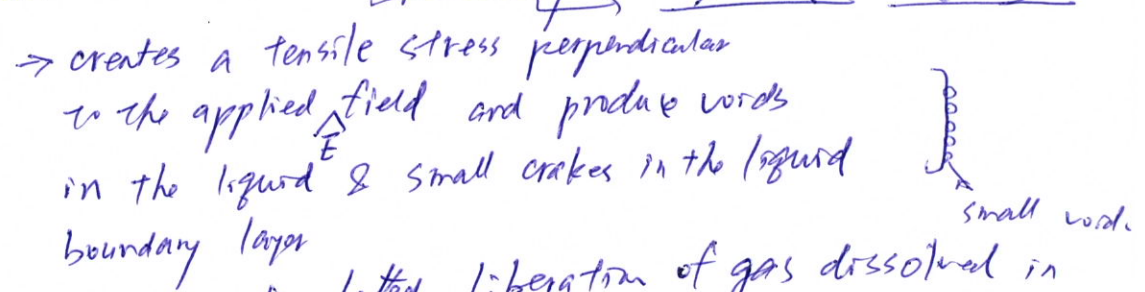 → creates a tensile stress perpendicular
to the applied E field and produce voids
in the liquid & small crakes in the liquid
small voids
boundary layer
liberation of gas dissolved in